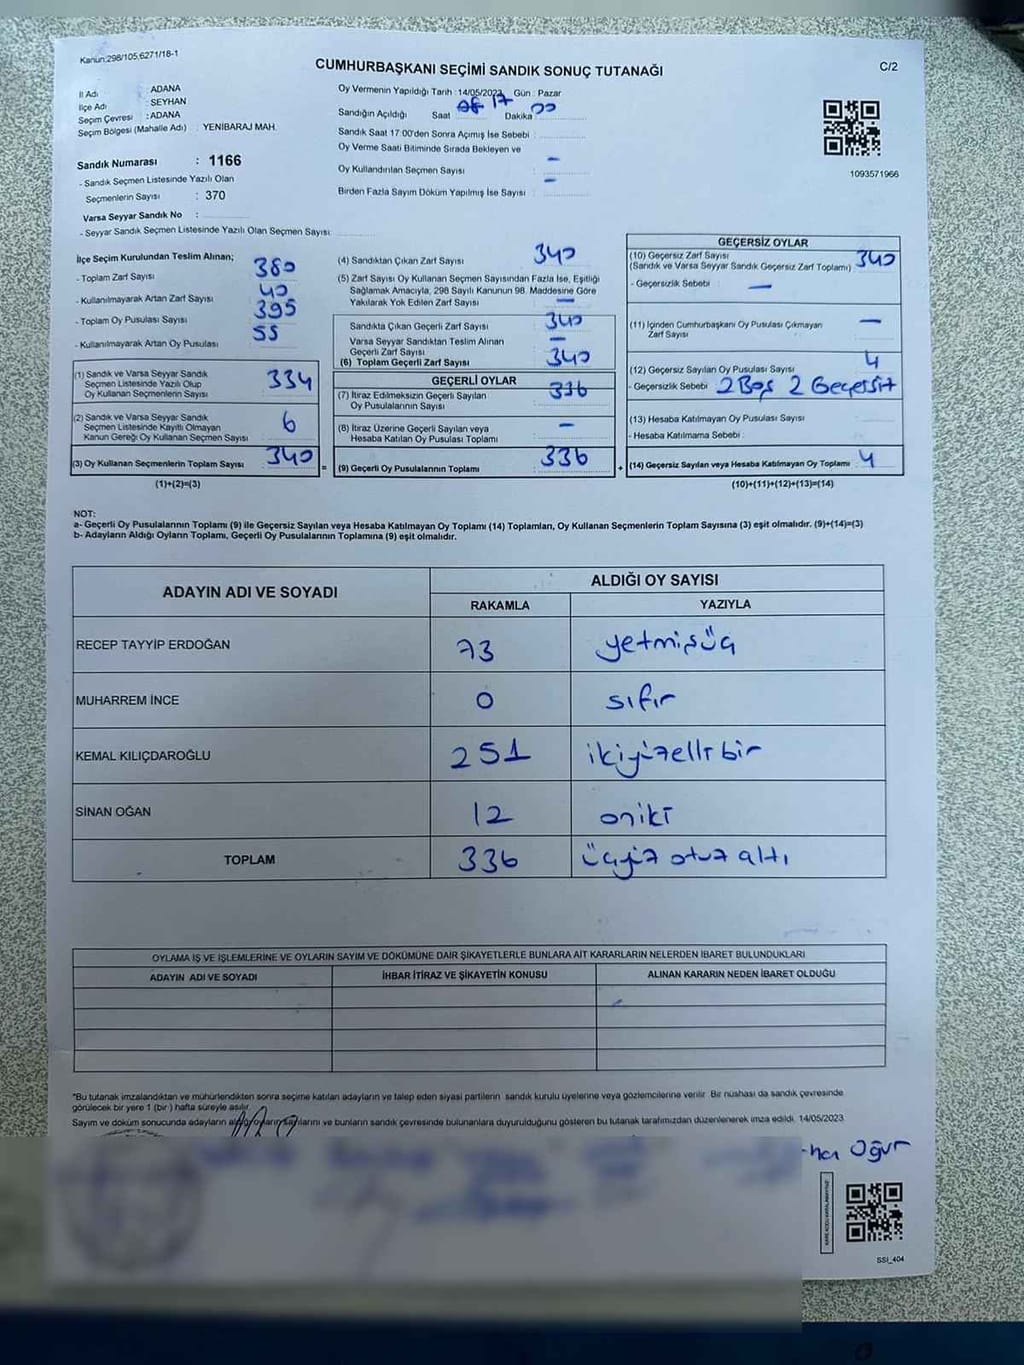 Kanun:298/105,6271/18-1
CUMHURBAŞKANI SEÇİMİ SANDIK SONUÇ TUTANAĞI
C/2
İl Adı : ADANA
İlçe Adı : SEYHAN
Seçim Çevresi : ADANA
Seçim Bölgesi (Mahalle Adı) : YENİBARAJ MAH.
Sandık Numarası : 1166
- Sandık Seçmen Listesinde Yazılı Olan
Seçmenlerin Sayısı : 370
Varsa Seyyar Sandık No :
- Seyyar Sandık Seçmen Listesinde Yazılı Olan Seçmen Sayısı:
Oy Vermenin Yapıldığı Tarih :14/05/2023 Gün : Pazar
Sandığın Açıldığı Saat 17 Dakika 00
Sandık Saat 17:00'den Sonra Açımış İse Sebebi :
Oy Verme Saati Bitiminde Sırada Bekleyen ve
Oy Kullandırılan Seçmen Sayısı : –
Birden Fazla Sayım Döküm Yapılmış İse Sayısı : –
1093571966
İlçe Seçim Kurulundan Teslim Alınan;
- Toplam Zarf Sayısı 380
- Kullanılmayarak Artan Zarf Sayısı 40
- Toplam Oy Pusulası Sayısı 395
- Kullanılmayarak Artan Oy Pusulası 55
(1) Sandık ve Varsa Seyyar Sandık
Seçmen Listesinde Yazılı Olup
Oy Kullanan Seçmenlerin Sayısı 334
(2) Sandık ve Varsa Seyyar Sandık
Seçmen Listesinde Kayıtlı Olmayan
Kanun Gereği Oy Kullanan Seçmen Sayısı 6
(3) Oy Kullanan Seçmenlerin Toplam Sayısı 340 =
(1)+(2)=(3)
(4) Sandıktan Çıkan Zarf Sayısı 340
(5) Zarf Sayısı Oy Kullanan Seçmen Sayısından Fazla İse, Eşitliği
Sağlamak Amacıyla, 298 Sayılı Kanunun 98. Maddesine Göre
Yakılarak Yok Edilen Zarf Sayısı –
Sandıkta Çıkan Geçerli Zarf Sayısı 340
Varsa Seyyar Sandıktan Teslim Alınan
Geçerli Zarf Sayısı –
(6) Toplam Geçerli Zarf Sayısı 340
GEÇERLİ OYLAR
(7) İtiraz Edilmeksizin Geçerli Sayılan
Oy Pusulalarının Sayısı 336
(8) İtiraz Üzerine Geçerli Sayılan veya
Hesaba Katılan Oy Pusulası Toplamı –
(9) Geçerli Oy Pusulalarının Toplamı 336 +
GEÇERSİZ OYLAR
(10) Geçersiz Zarf Sayısı
(Sandık ve Varsa Seyyar Sandık Geçersiz Zarf Toplamı) 340
- Geçersizlik Sebebi : –
(11) İçinden Cumhurbaşkanı Oy Pusulası Çıkmayan
Zarf Sayısı –
(12) Geçersiz Sayılan Oy Pusulası Sayısı 4
- Geçersizlik Sebebi 2 Boş 2 Geçersiz
(13) Hesaba Katılmayan Oy Pusulası Sayısı
- Hesaba Katılmama Sebebi :
(14) Geçersiz Sayılan veya Hesaba Katılmayan Oy Toplamı 4
(10)+(11)+(12)+(13)=(14)
NOT:
a- Geçerli Oy Pusulalarının Toplamı (9) ile Geçersiz Sayılan veya Hesaba Katılmayan Oy Toplamı (14) Toplamları, Oy Kullanan Seçmenlerin Toplam Sayısına (3) eşit olmalıdır. (9)+(14)=(3)
b- Adayların Aldığı Oyların Toplamı, Geçerli Oy Pusulalarının Toplamına (9) eşit olmalıdır.
ADAYIN ADI VE SOYADI
ALDIĞI OY SAYISI
RAKAMLA YAZIYLA
RECEP TAYYİP ERDOĞAN 73 yetmişüç
MUHARREM İNCE 0 sıfır
KEMAL KILIÇDAROĞLU 251 ikiyüzelli bir
SİNAN OĞAN 12 oniki
TOPLAM 336 üçyüz otuz altı
OYLAMA İŞ VE İŞLEMLERİNE VE OYLARIN SAYIM VE DÖKÜMÜNE DAİR ŞİKAYETLERLE BUNLARA AİT KARARLARIN NELERDEN İBARET BULUNDUKLARI
ADAYIN ADI VE SOYADI İHBAR İTİRAZ VE ŞİKAYETİN KONUSU ALINAN KARARIN NEDEN İBARET OLDUĞU
*Bu tutanak imzalandıktan ve mühürlendikten sonra seçime katılan adayların ve talep eden siyasi partilerin sandık kurulu üyelerine veya gözlemcilerine verilir. Bir nüshası da sandık çevresinde
görülecek bir yere 1 (bir) hafta süreyle asılır.
Sayım ve döküm sonucunda adayların aldığı oyların sayılarını ve bunların sandık çevresinde bulunanlara duyurulduğunu gösteren bu tutanak tarafımızdan düzenlenerek imza edildi. 14/05/2023
Oğur
SSİ_404